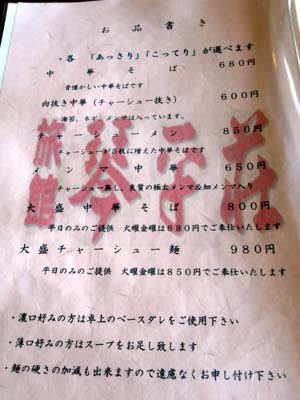 お品書き
・各 「あっさり」「こってり」が選べます
中華そば 680円
昔懐かしい中華そばです
肉抜き中華(チャーシュー抜き) 600円
海苔、ネギ、メンマは入っています。
チャーシューメン 850円
チャーシューが5枚に増えた中華そばです
メンマ中華 650円
チャーシュー無し、良質の極太メンマ&細メンマ入り
大盛中華そば 800円
平日のみのご提供 火曜金曜は680円でご奉仕いたします
大盛チャーシュー麺 980円
平日のみのご提供 火曜金曜は850円でご奉仕いたします
旅館
・濃口好みの方は卓上のベースダレをご使用下さい
・薄口好みの方はスープをお足し致します
・麺の硬さの加減も出来ますので遠慮なくお申し付け下さい